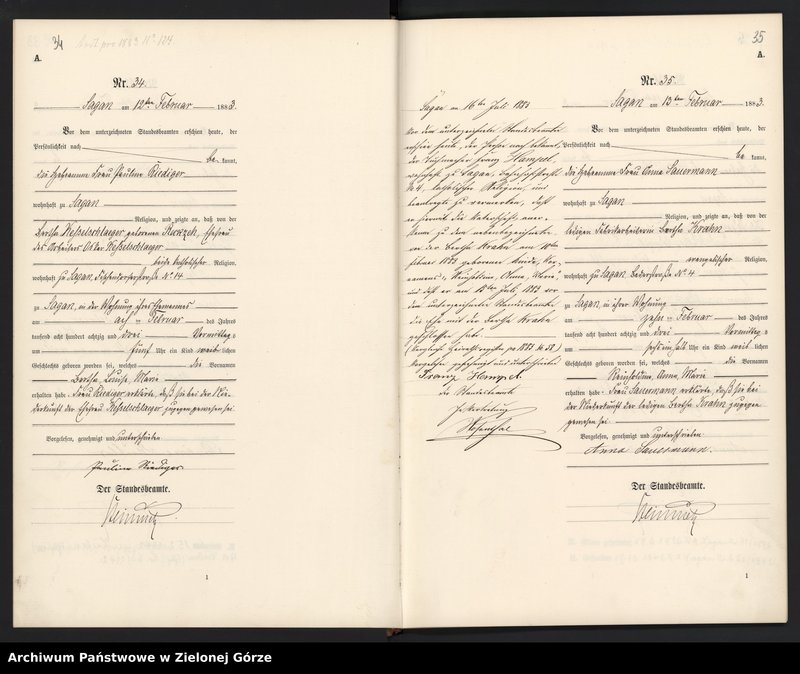 34
A.
Nr. 34.
Sagan am 12ten Februar 1883.
Vor dem unterzeichneten Standesbeamten erschien heute, der
Persönlichkeit nach
be kannt,
die Hebamme Frau Pauline Riediger
wohnhaft zu Sagan
Religion, und zeigte an, daß von der
Bertha Kesselschlaeger geborenen, Ehefrau
des Arbeiters Kesselschlaeger
beide katholischer Religion,
wohnhaft zu Sagan, No 14
zu Sagan, in der Wohnung ihres Ehemannes
am Februar des Jahres
tausend acht hundert achtzig und drei Vormittags
um fünf Uhr ein Kind weiblichen
Geschlechts geboren worden sei, welches die Vornamen
Bertha Louise Marie
erhalten habe. Frau Riediger erklärte, daß sie bei der Nie-
derkunft der Ehefrau Kesselschlaeger zugegen gewesen sei.
Vorgelesen, genehmigt und unterschrieben
Pauline Riediger
Der Standesbeamte.
1
Sagan am 16ten Juli 1883
Vor dem unterzeichneten Standesbeamten
erschien heute, der Person nach bekannt,
der Tuchmacher Franz Hempel,
wohnhaft zu Sagan,
No 4, katholischer Religion, und
beantragte zu vermerken, daß
er hiermit die Vaterschaft aner-
kenne zu dem
von der Bertha Krahn am 10ten
Februar 1883 geborenen Kinde, Vor-
namens: "Anna, Marie"
und daß er am 15ten Juli 1883 vor
dem unterzeichneten Standesbeamten
die Ehe mit der Bertha Krahn
geschlossen habe.
Vorgelesen, genehmigt und unterschrieben
Franz Hempel
Der Standesbeamte
In Vertretung
35
A.
Nr. 35.
Sagan am 13ten Februar 1883.
Vor dem unterzeichneten Standesbeamten erschien heute, der
Persönlichkeit nach
be kannt,
die Hebamme Frau Anna Sauermann
wohnhaft zu Sagan
Religion, und zeigte an, daß von der
ledigen Fabrikarbeiterin Bertha Krahn
evangelischer Religion,
wohnhaft zu Sagan No 4
zu Sagan in ihrer Wohnung
am zehn ten Februar des Jahres
tausend acht hundert achtzig und drei Vormittags
um Uhr ein Kind weiblichen
Geschlechts geboren worden sei, welches die Vornamen
Anna, Marie
erhalten habe. Frau Sauermann erklärte, daß sie bei
der Niederkunft der ledigen Bertha Krahn zugegen
gewesen sei.
Vorgelesen, genehmigt und unterschrieben
Anna Sauermann.
Der Standesbeamte.
1
Archiwum Państwowe w Zielonej Górze